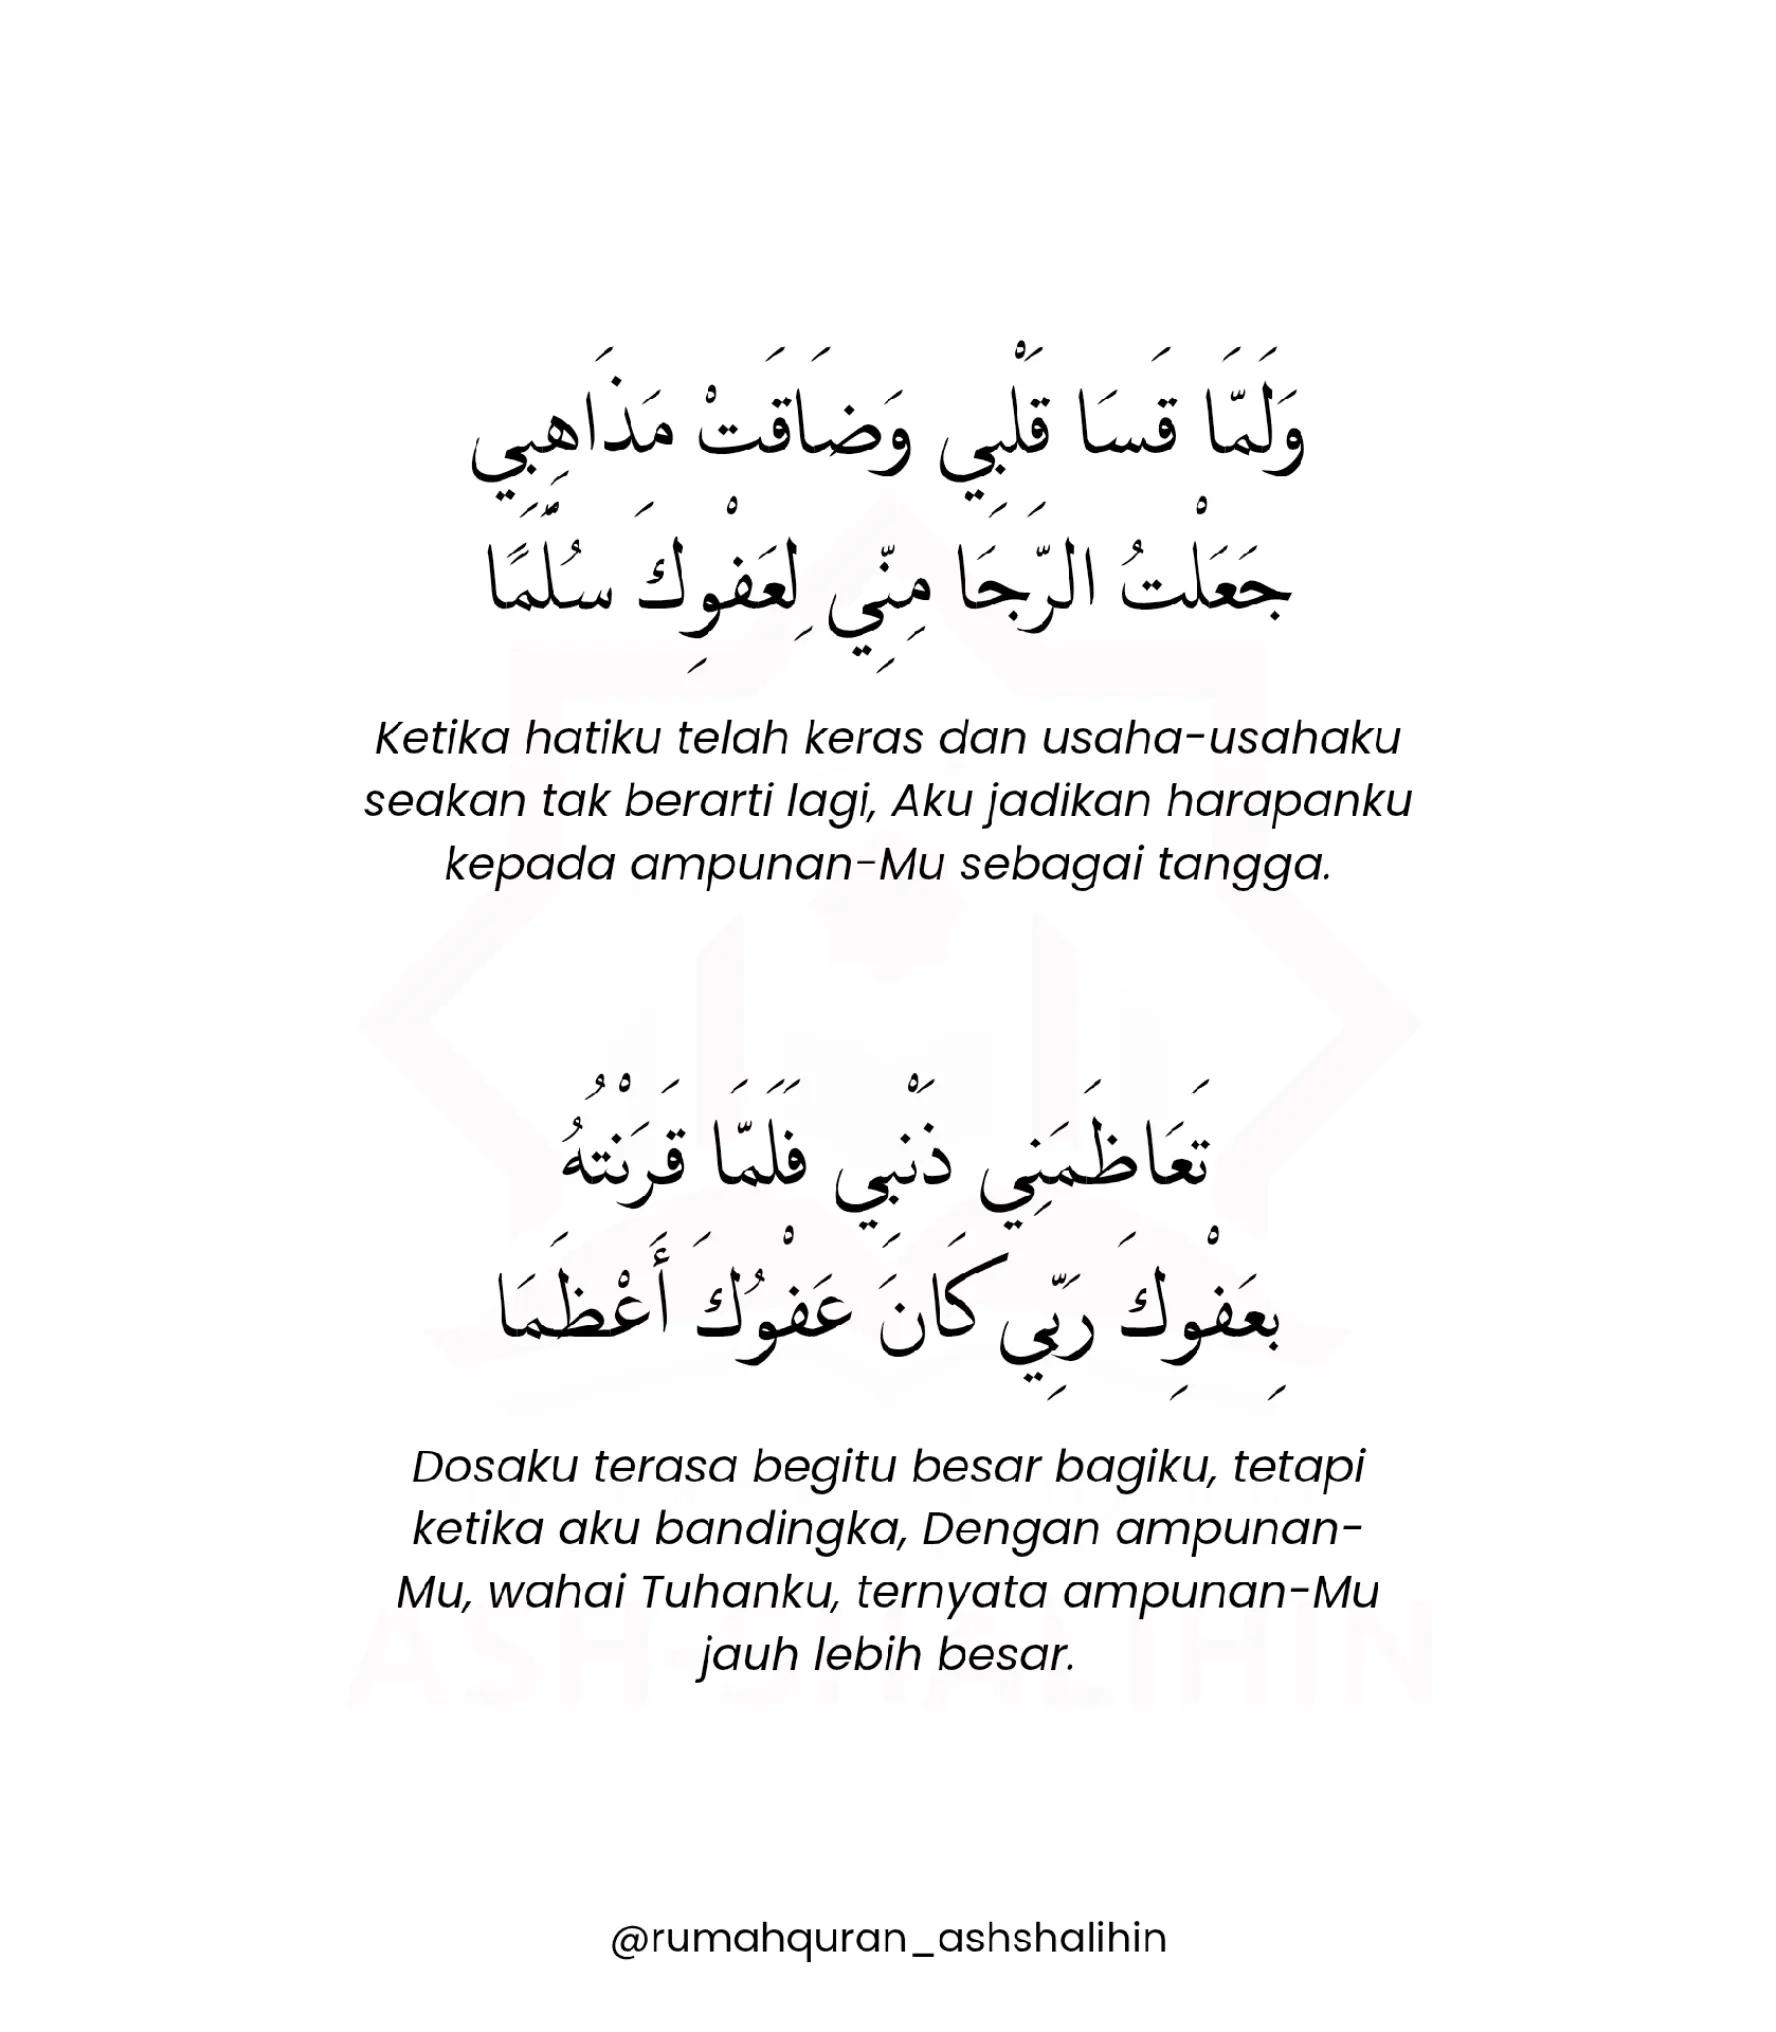 وَلَمَّا قَسَا قَلْبِي وَضَاقَتْ مَذَاهِبِي
جَعَلْتُ الرَّجَا مِنِّي لِعَفْوِكَ سُلَّمًا
Ketika hatiku telah keras dan usaha-usahaku
seakan tak berarti lagi, Aku jadikan harapanku
kepada ampunan-Mu sebagai tangga.
تَعَاظَمَنِي ذَنْبِي فَلَمَّا قَرَنْتُهُ
بِعَفْوِكَ رَبِّي كَانَ عَفْوُكَ أَعْظَمَا
Dosaku terasa begitu besar bagiku, tetapi
ketika aku bandingka, Dengan ampunan-
Mu, wahai Tuhanku, ternyata ampunan-Mu
jauh lebih besar.
ASH-SHALIHIN
@rumahquran_ashshalihin